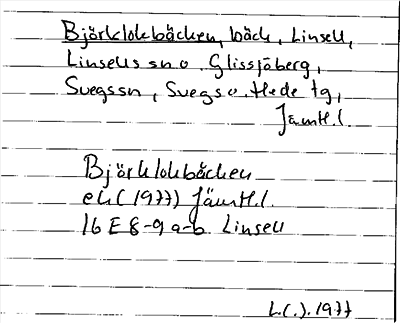 Björklokbäcken, bäck, Linsell,
Linsells sn o. Glissjöberg,
Svegs sn, Svegs o. Hede tg,
Jämtl. l.
Björklokbäcken
ek (1977) Jämtl. l.
16 E 8-9 a-b Linsell
L( ). 1977